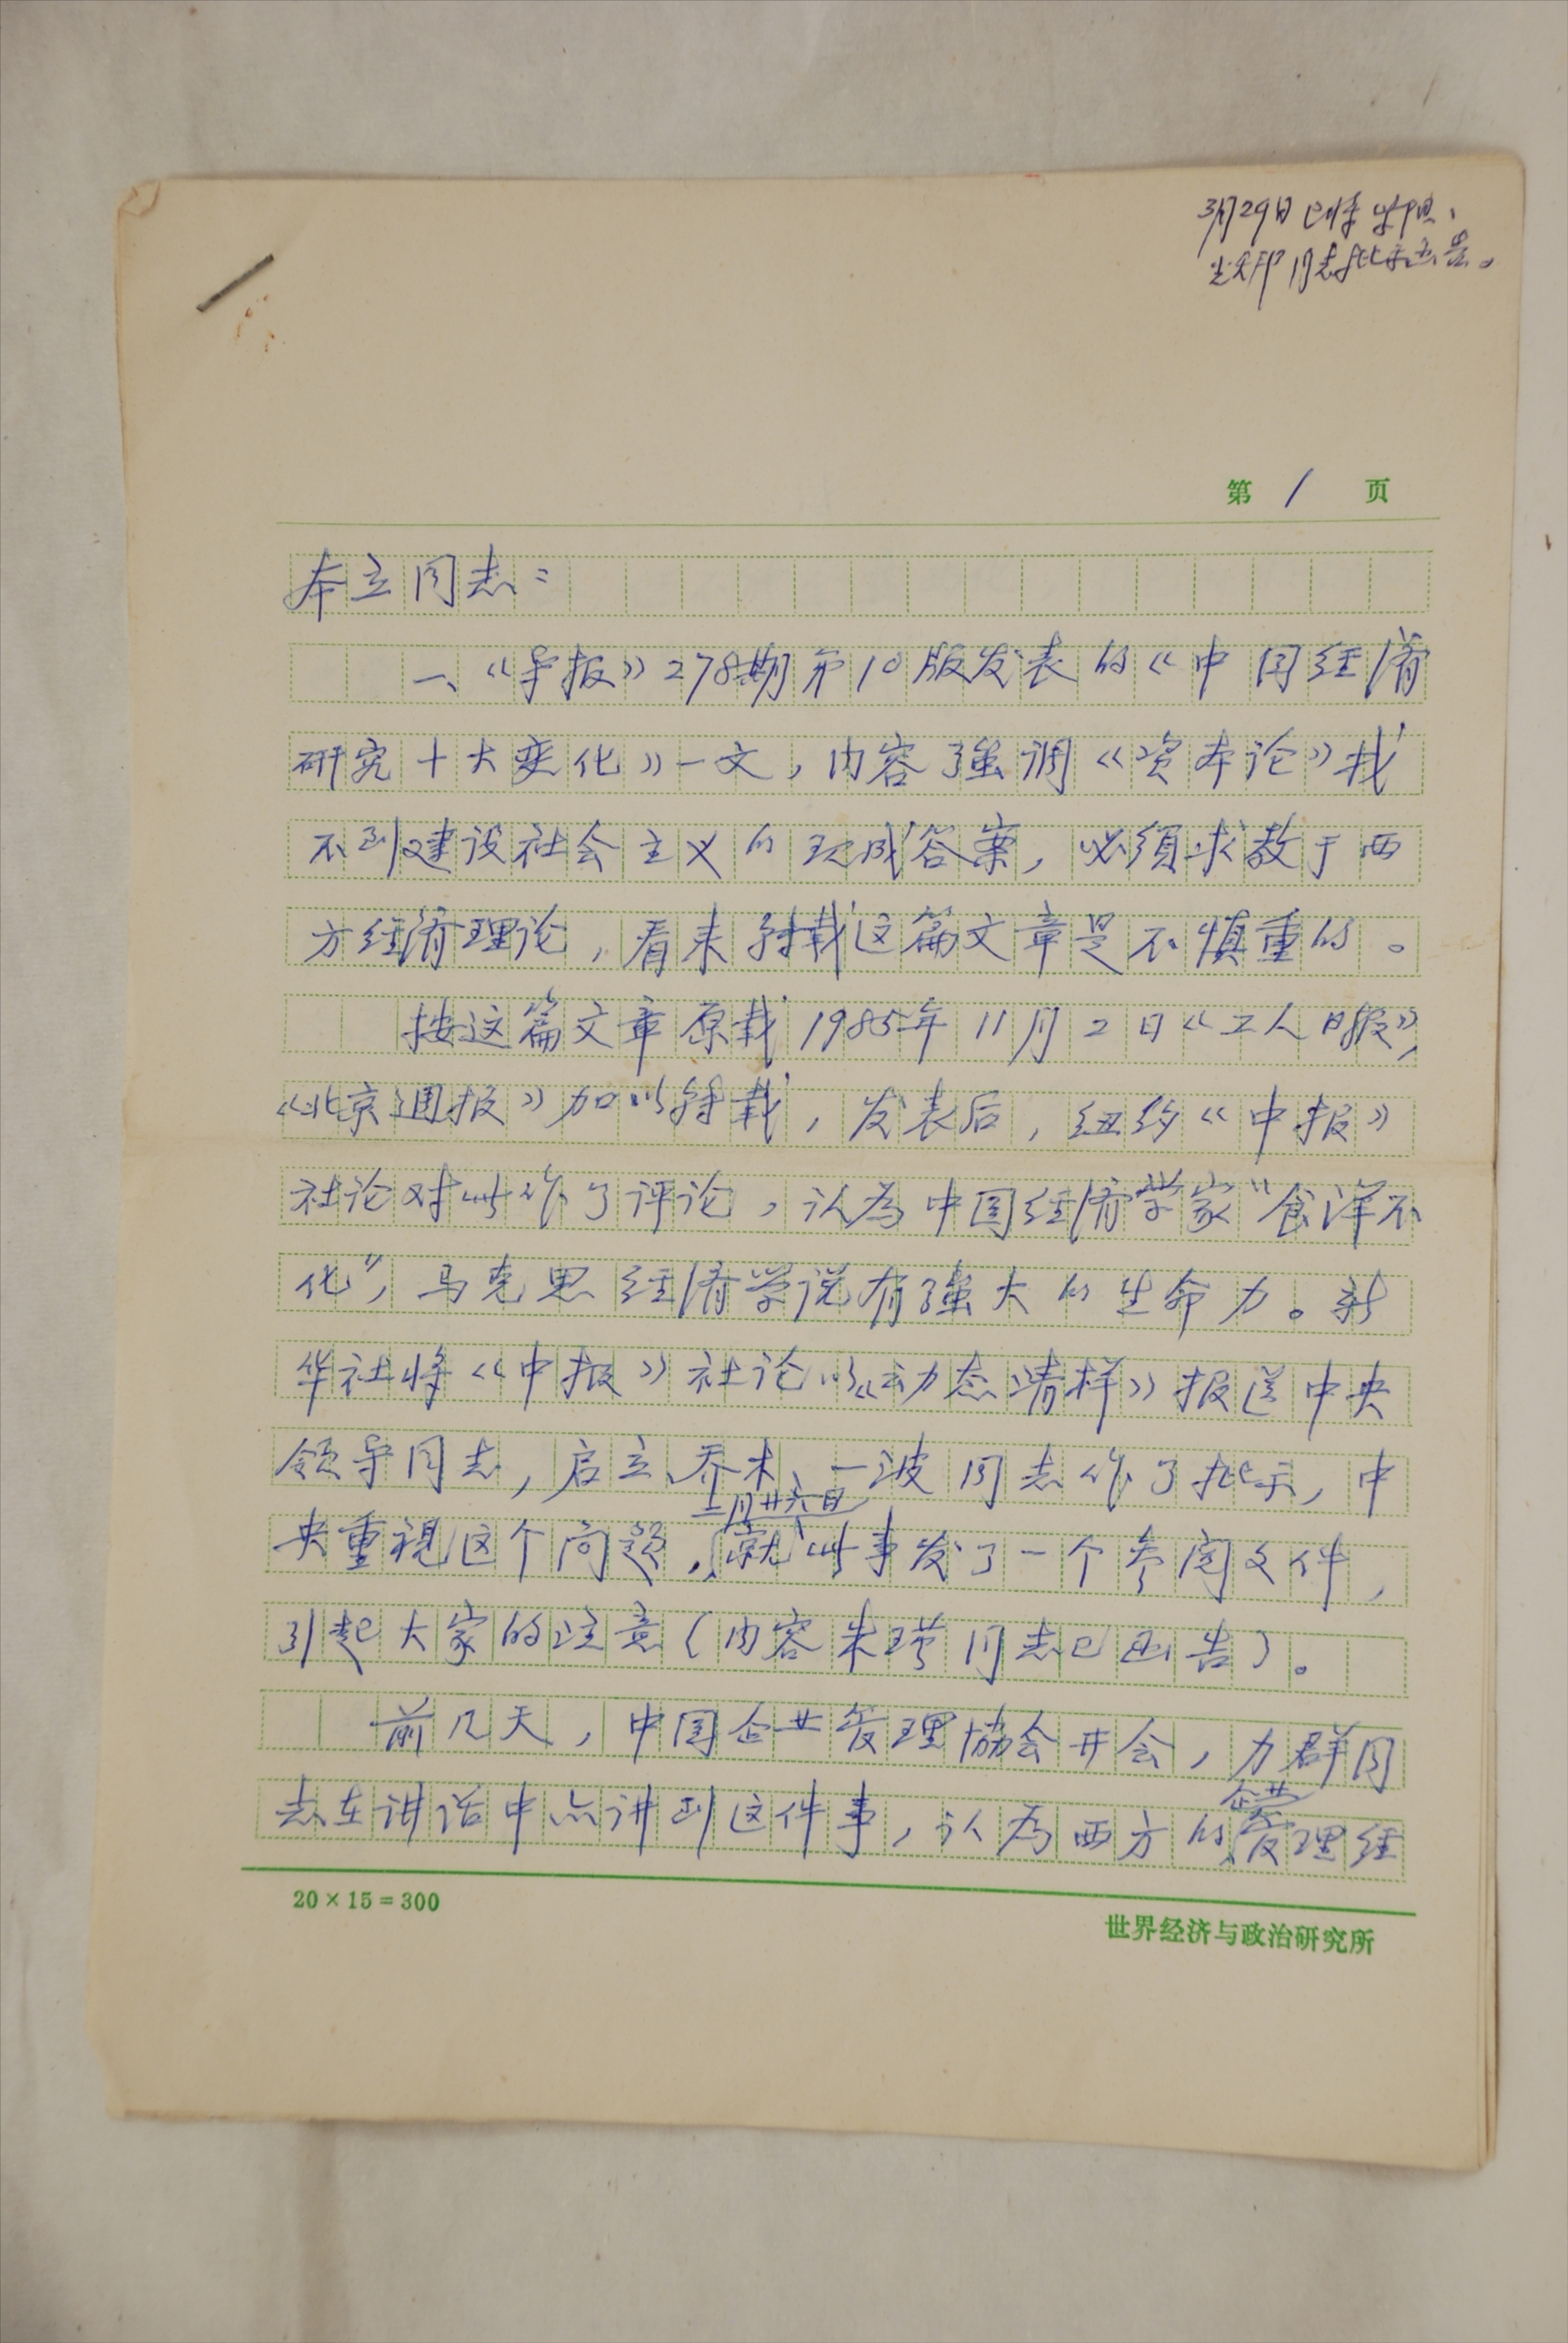 3月29日已将紫阳、
耀邦同志批示函告。
第 1 页
本立同志：
一、《导报》278期第10版发表的《中国经济
研究十大变化》一文，内容强调《资本论》找
不到建设社会主义的现成答案，必须求教于西
方经济理论，看来转载这篇文章是不慎重的。
按这篇文章原载1985年11月2日《工人日报》，
《北京周报》加以转载，发表后，纽约《中报》
社论对此作了评论，认为中国经济学家“食洋不
化”，马克思经济学说有强大的生命力。新
华社将《中报》社论以《动态清样》报送中央
领导同志，启立、乔木、一波同志作了批示，中
央重视这个问题，二月廿六日就此事发了一个参阅文件，
引起大家的注意（内容朱瑞同志已函告）。
前几天，中国企业管理协会开会，力群同
志在讲话中点讲到这件事，认为西方的企业管理经
20×15=300
世界经济与政治研究所